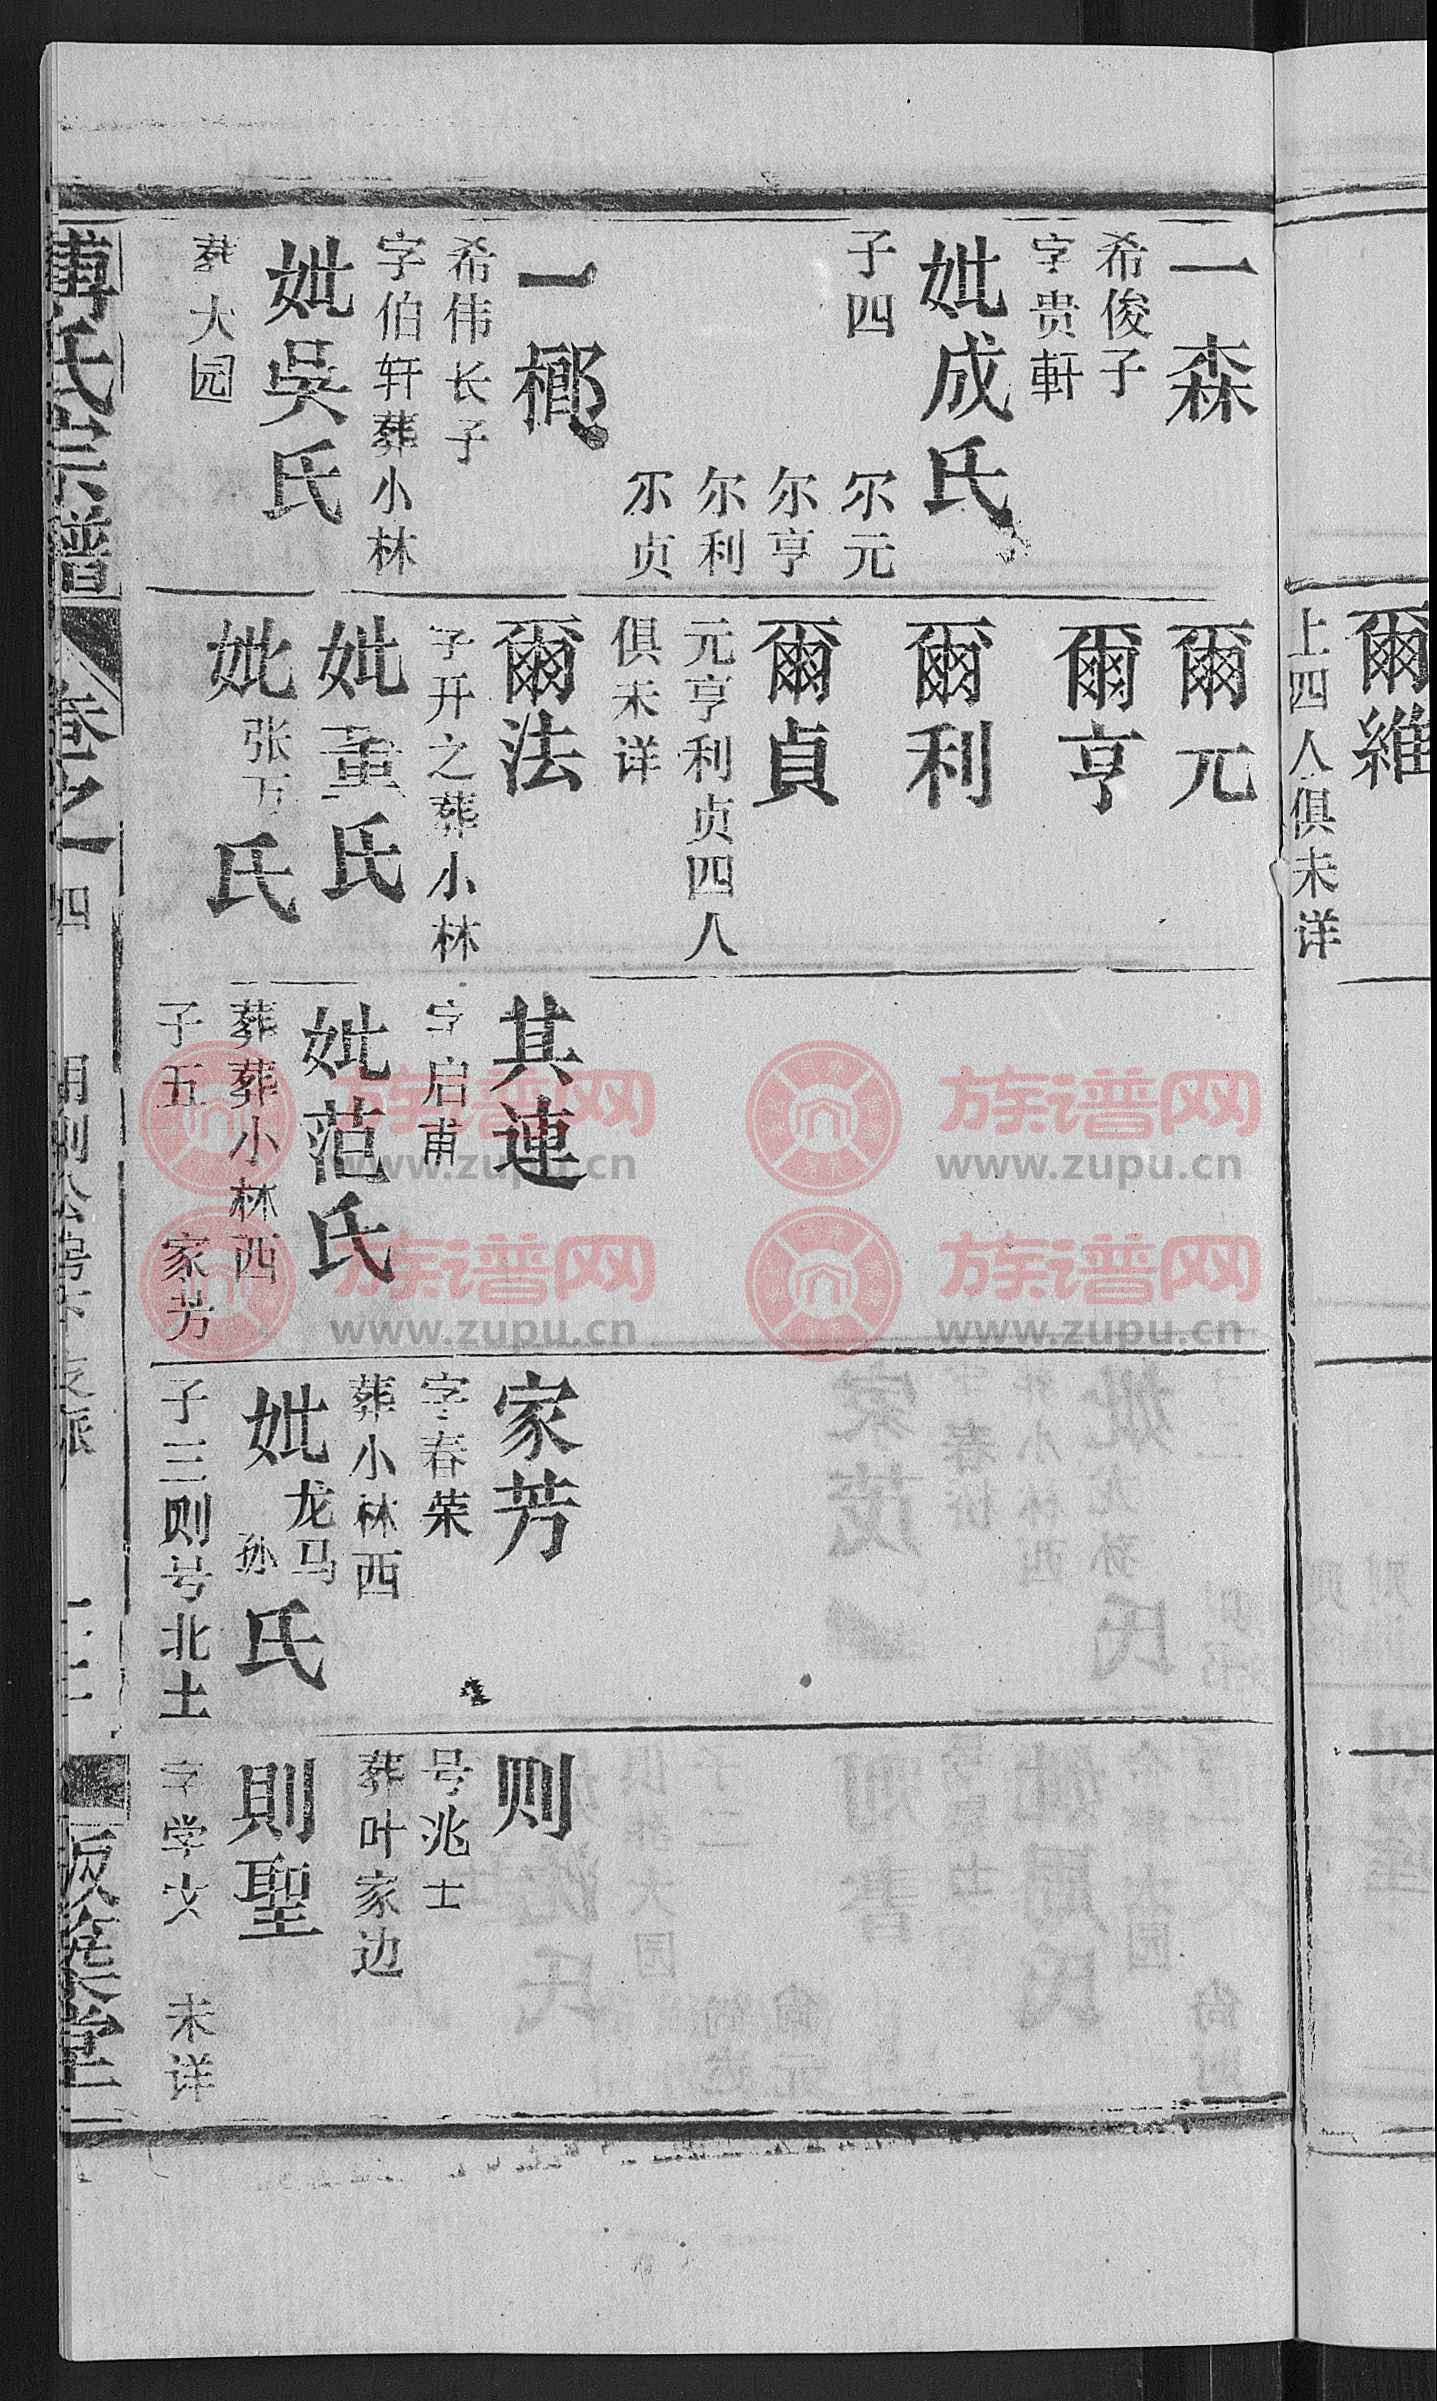 爾維
上四人俱未详
一森
希俊子
字贵軒
妣成氏
子四
尔元
尔亨
尔利
尔贞
一榔
希伟长子
字伯轩葬小林
妣吳氏
葬大园
爾元
爾亨
爾利
爾貞
元亨利贞四人
俱未详
爾法
子开之葬小林
妣董氏
妣张万氏
其連
字启甫
妣范氏
葬葬小林西
子五
家芳
家芳
字春荣
葬小林西
妣龙马孙氏
子三则号北土
则
号兆士
葬叶家边
則聖
字学文
未详
傅氏宗譜
卷之一
四
版筑堂
族谱网
www.zupu.cn
族谱网
www.zupu.cn
族谱网
www.zupu.cn
族谱网
www.zupu.cn